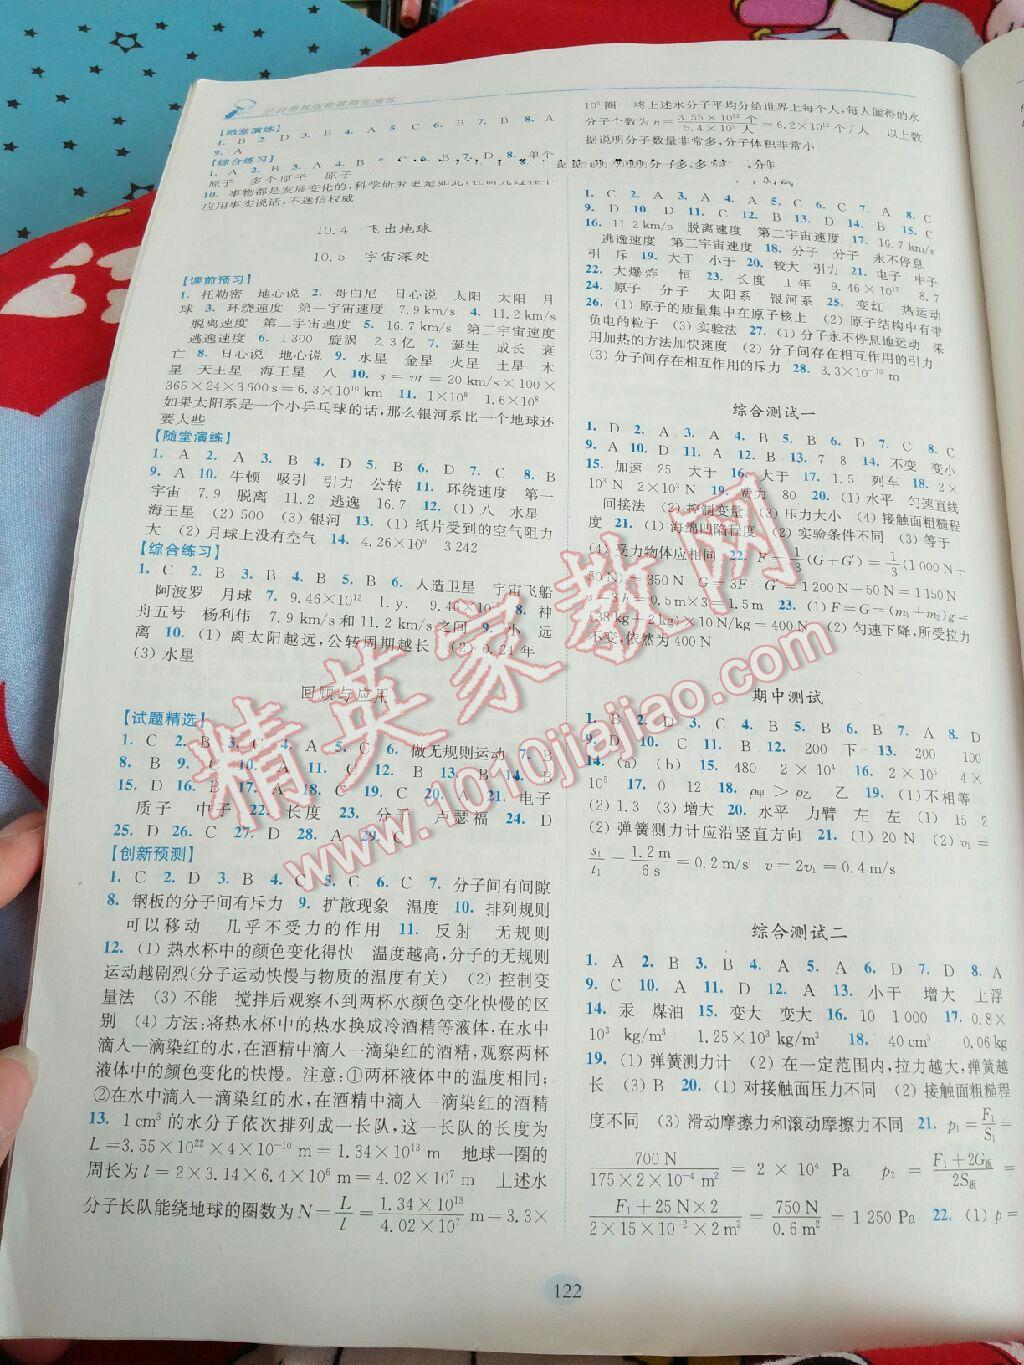 【随堂演练】
9. A
【综合练习】
原子 多个原子 原子
10. 事物都是发展变化的,科学研究更是如此,在研究过程中
应用事实说话,不迷信权威
10.4 飞出地球
10.5 宇宙深处
【课前预习】
1. 托勒密 地心说 2. 哥白尼 日心说 太阳 太阳 月
球 3. 环绕速度 第一宇宙速度 7.9 km/s 4. 11.2 km/s
脱离速度 第二宇宙速度 5. 16.7 km/s 第三宇宙速度
逃逸速度 6. 1 300 旋涡 2.3亿 7. 诞生 成长 衰
亡 8. 日心说 地心说 9. 水星 金星 火星 土星 木
星 天王星 海王星 八 10. s=vt=20 km/s×100×
365×24×3 600 s=6.3×10¹⁰ km 11. 1×10⁹ 1.6×10⁸
如果太阳系是一个小乒乓球的话,那么银河系比一个地球还
要大些
【随堂演练】
1. A 2. A 3. B 4. D 5. B 6. D 7. C 8. B
9. A 10. 牛顿 吸引 引力 公转 11. 环绕速度 第一
宇宙 7.9 脱离 11.2 逃逸 16.7 12. (1) 八 水星
海王星 (2) 500 (3) 银河 13. (1) 纸片受到的空气阻力
大 (2) 月球上没有空气 14. 4.26×10⁹ 3 242
【综合练习】
1. C 2. B 3. B 4. B 5. B 6. 人造卫星 宇宙飞船
阿波罗 月球 7. 9.46×10¹² l.y. 8. 神
舟五号 杨利伟 7.9 km/s和11.2 km/s之间 9. 水 远
离 10. (1) 离太阳越远,公转周期越长 (2) 0.24年
(3) 水星
回顾与应用
【试题精选】
1. C 2. B 3. C 4. A 5. C 6. 做无规则运动 7. B
8. B 9. C 10. A 11. C 12. B 13. B 14. B
15. D 16. B 17. A 18. C 19. C 20. A 21. 电子
质子 中子 22. 长度 23. 分子 卢瑟福 24. D
25. D 26. C 27. D 28. A 29. C
【创新预测】
1. C 2. D 3. B 4. C 5. C 6. C 7. 分子间有间隙
8. 钢板的分子间有斥力 9. 扩散现象 温度 10. 排列规则
可以移动 几乎不受力的作用 11. 反射 无规则
12. (1) 热水杯中的颜色变化得快 温度越高,分子的无规则
运动越剧烈(分子运动快慢与物质的温度有关) (2) 控制变
量法 (3) 不能 搅拌后观察不到两杯水颜色变化快慢的区
别 (4) 方法:将热水杯中的热水换成冷酒精等液体,在水中
滴入一滴染红的水,在酒精中滴入一滴染红的酒精,观察两杯
液体中的颜色变化的快慢。注意:①两杯液体中的温度相同;
②在水中滴入一滴染红的水,在酒精中滴入一滴染红的酒精
13. 1 cm³的水分子依次排列成一长队,这一长队的长度为
L=3.55×10²²×4×10⁻¹⁰ m=1.34×10¹³ m 地球一圈的
周长为l=2×3.14×6.4×10⁶ m=4.02×10⁷ m 上述水
分子长队能绕地球的圈数为N=L/l=1.34×10¹³/4.02×10⁷ m=3.3×
10⁵圈 将上述水分子平均分给世界上每个人,每人能得的水
分子个数为n=3.55×10²²个/5.4×10⁹人=6.2×10¹²个/人 以上数
据说明分子数量非常多,分子体积非常小
1. C 2. A 3. A 4. A 5. C 6. C 7. A 8. C
9. D 10. D 11. C 12. B 13. D 14. B 15. C
16. 11.2 km/s 脱离速度 第二宇宙速度 17. 16.7 km/s
逃逸速度 第三宇宙速度 18. 分子 分子 永不停息
引 斥 19. 大于 小于 20. 较大 引力 21. 电子 中子
22. 大爆炸 恒 23. 长度 1年 9.46×10¹⁷ 8.7
24. 原子 分子 太阳系 银河系 25. 变红 热运动
26. (1) 原子的质量集中在原子核上 (2) 原子结构中有带
负电的粒子 (3) 实验法 27. (1) 分子永不停息地运动 采
用加热的方法加快速度 (2) 分子间存在相互作用的引力
(3) 分子间存在相互作用的斥力 28. 3.3×10⁻¹⁰ m
综合测试一
1. D 2. A 3. A 4. B 5. B 6. D 7. C 8. C
9. A 10. D 11. A 12. B 13. 7 8 14. 不变 变小
15. 加速 25 大于 16. 大于 17. 1.5 列车 18. 2×
10³ N 2×10³ N 19. 费力 80 20. (1) 水平 匀速直线
间接法 (2) 控制变量 (3) 压力大小 (4) 接触面粗糙程
度 21. (1) 海绵凹陷程度 (2) 实验条件不同 (3) 等于
(4) 受力物体应相同 22. F=1/3(G+G′)=1/3(1 000 N+
50 N)=350 N G=3F−G′=1 200 N−50 N=1 150 N
s=3h=0.5 m×3=1.5 m 23. (1) F=G=(m₁+m₂)g=
(38 kg+2 kg)×10 N/kg=400 N (2) 匀速下降,所受拉力
不变,依然为400 N
期中测试
1. B 2. D 3. C 4. B 5. B 6. B 7. A 8. D
9. D 10. C 11. B 12. 200 下 13. 200 100
14. (a) (b) 15. 480 2×10⁴ 16. 2×10³ 4×
10⁵ 17. 0 12 18. ρ甲>ρ乙 乙 19. (1) 不相等
(2) 1.3 (3) 增大 20. 水平 力臂 左 左 (1) 15 2
(2) 弹簧测力计应沿竖直方向 21. (1) 20 N (2) v₁=
s₁/t₁=1.2 m/6 s=0.2 m/s v=2v₁=0.4 m/s
综合测试二
1. A 2. B 3. B 4. A 5. A 6. D 7. D 8. A
9. C 10. A 11. D 12. A 13. 小于 增大 上浮
14. 汞 煤油 15. 变大 变大 16. 10 1 000 17. 0.8×
10³ kg/m³ 1.25×10³ kg/m³ 18. 40 cm³ 0.06 kg
19. (1) 弹簧测力计 (2) 在一定范围内,拉力越大,弹簧越
长 (3) B 20. (1) 对接触面压力不同 (2) 接触面粗糙程
度不同 (3) 滑动摩擦力和滚动摩擦力不同 21. p₁=F₁/S₁=
700 N/175×2×10⁻⁴ m²=2×10⁴ Pa p₂=F₁+2G板/2S板=
F₁+25 N×2/2×15×10⁻²×2 m²=750 N/0.6 m²=1 250 Pa 22. (1) p=
122
精英家教网
www.1010jiajiao.com